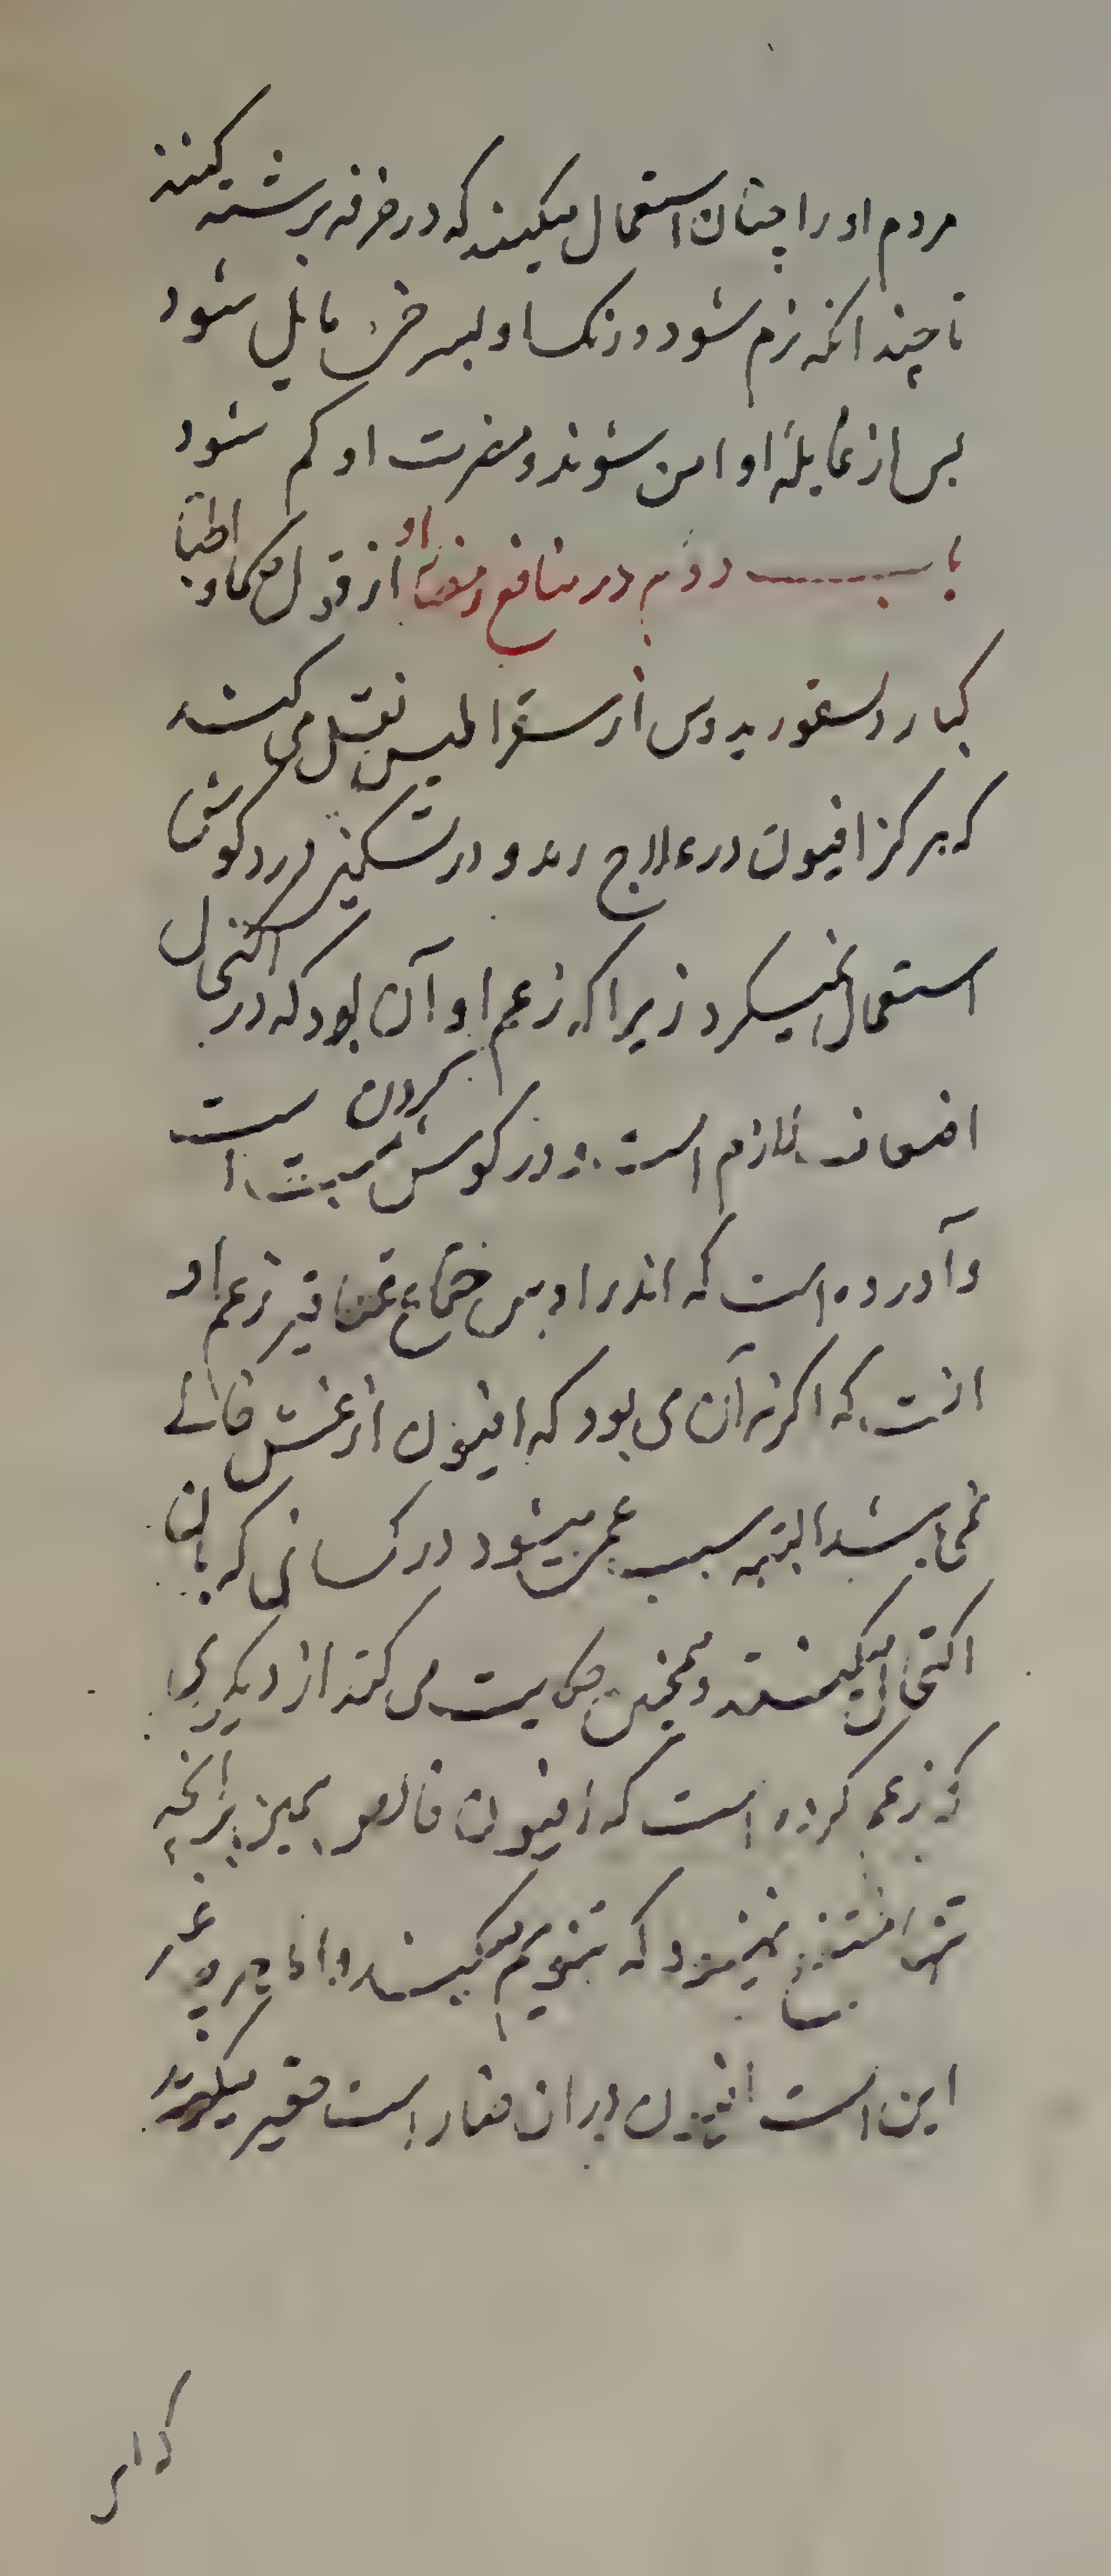 مردم او را چنان استعمال میکنند که در خرفه برشته کنند
تا چند انکه نرم شود و رنک او بسرخی مایل شود
بس از غایله او امن شوند و مضرت او کم شود
باب دوم در منافع و مضار او از قول حکما و اطبا
کبار دیسقوریدوس از سقراطیس نقل می کند
که هرکز افیون در علاج رمد و در تسکین درد کوش
استعمال نمیکرد زیرا که زعم او آن بود که در اکتحال
اضعاف لازم است و در کوش کردن است
و آورده است که اندراوس زعم او
انست که اکر نه آن می بود که افیون از غش خالی
نمی باشد البته سبب عمی میشود در کسانی که بان
اکتحال میکنند و همچنین حکایت می کند از دیکری
که زعم کرده است که افیون خالص بهیچ برانچه
که تنویم میکنند و اما در غیر
این است افیون در ان مضار است فقیر میکوید
که اکر